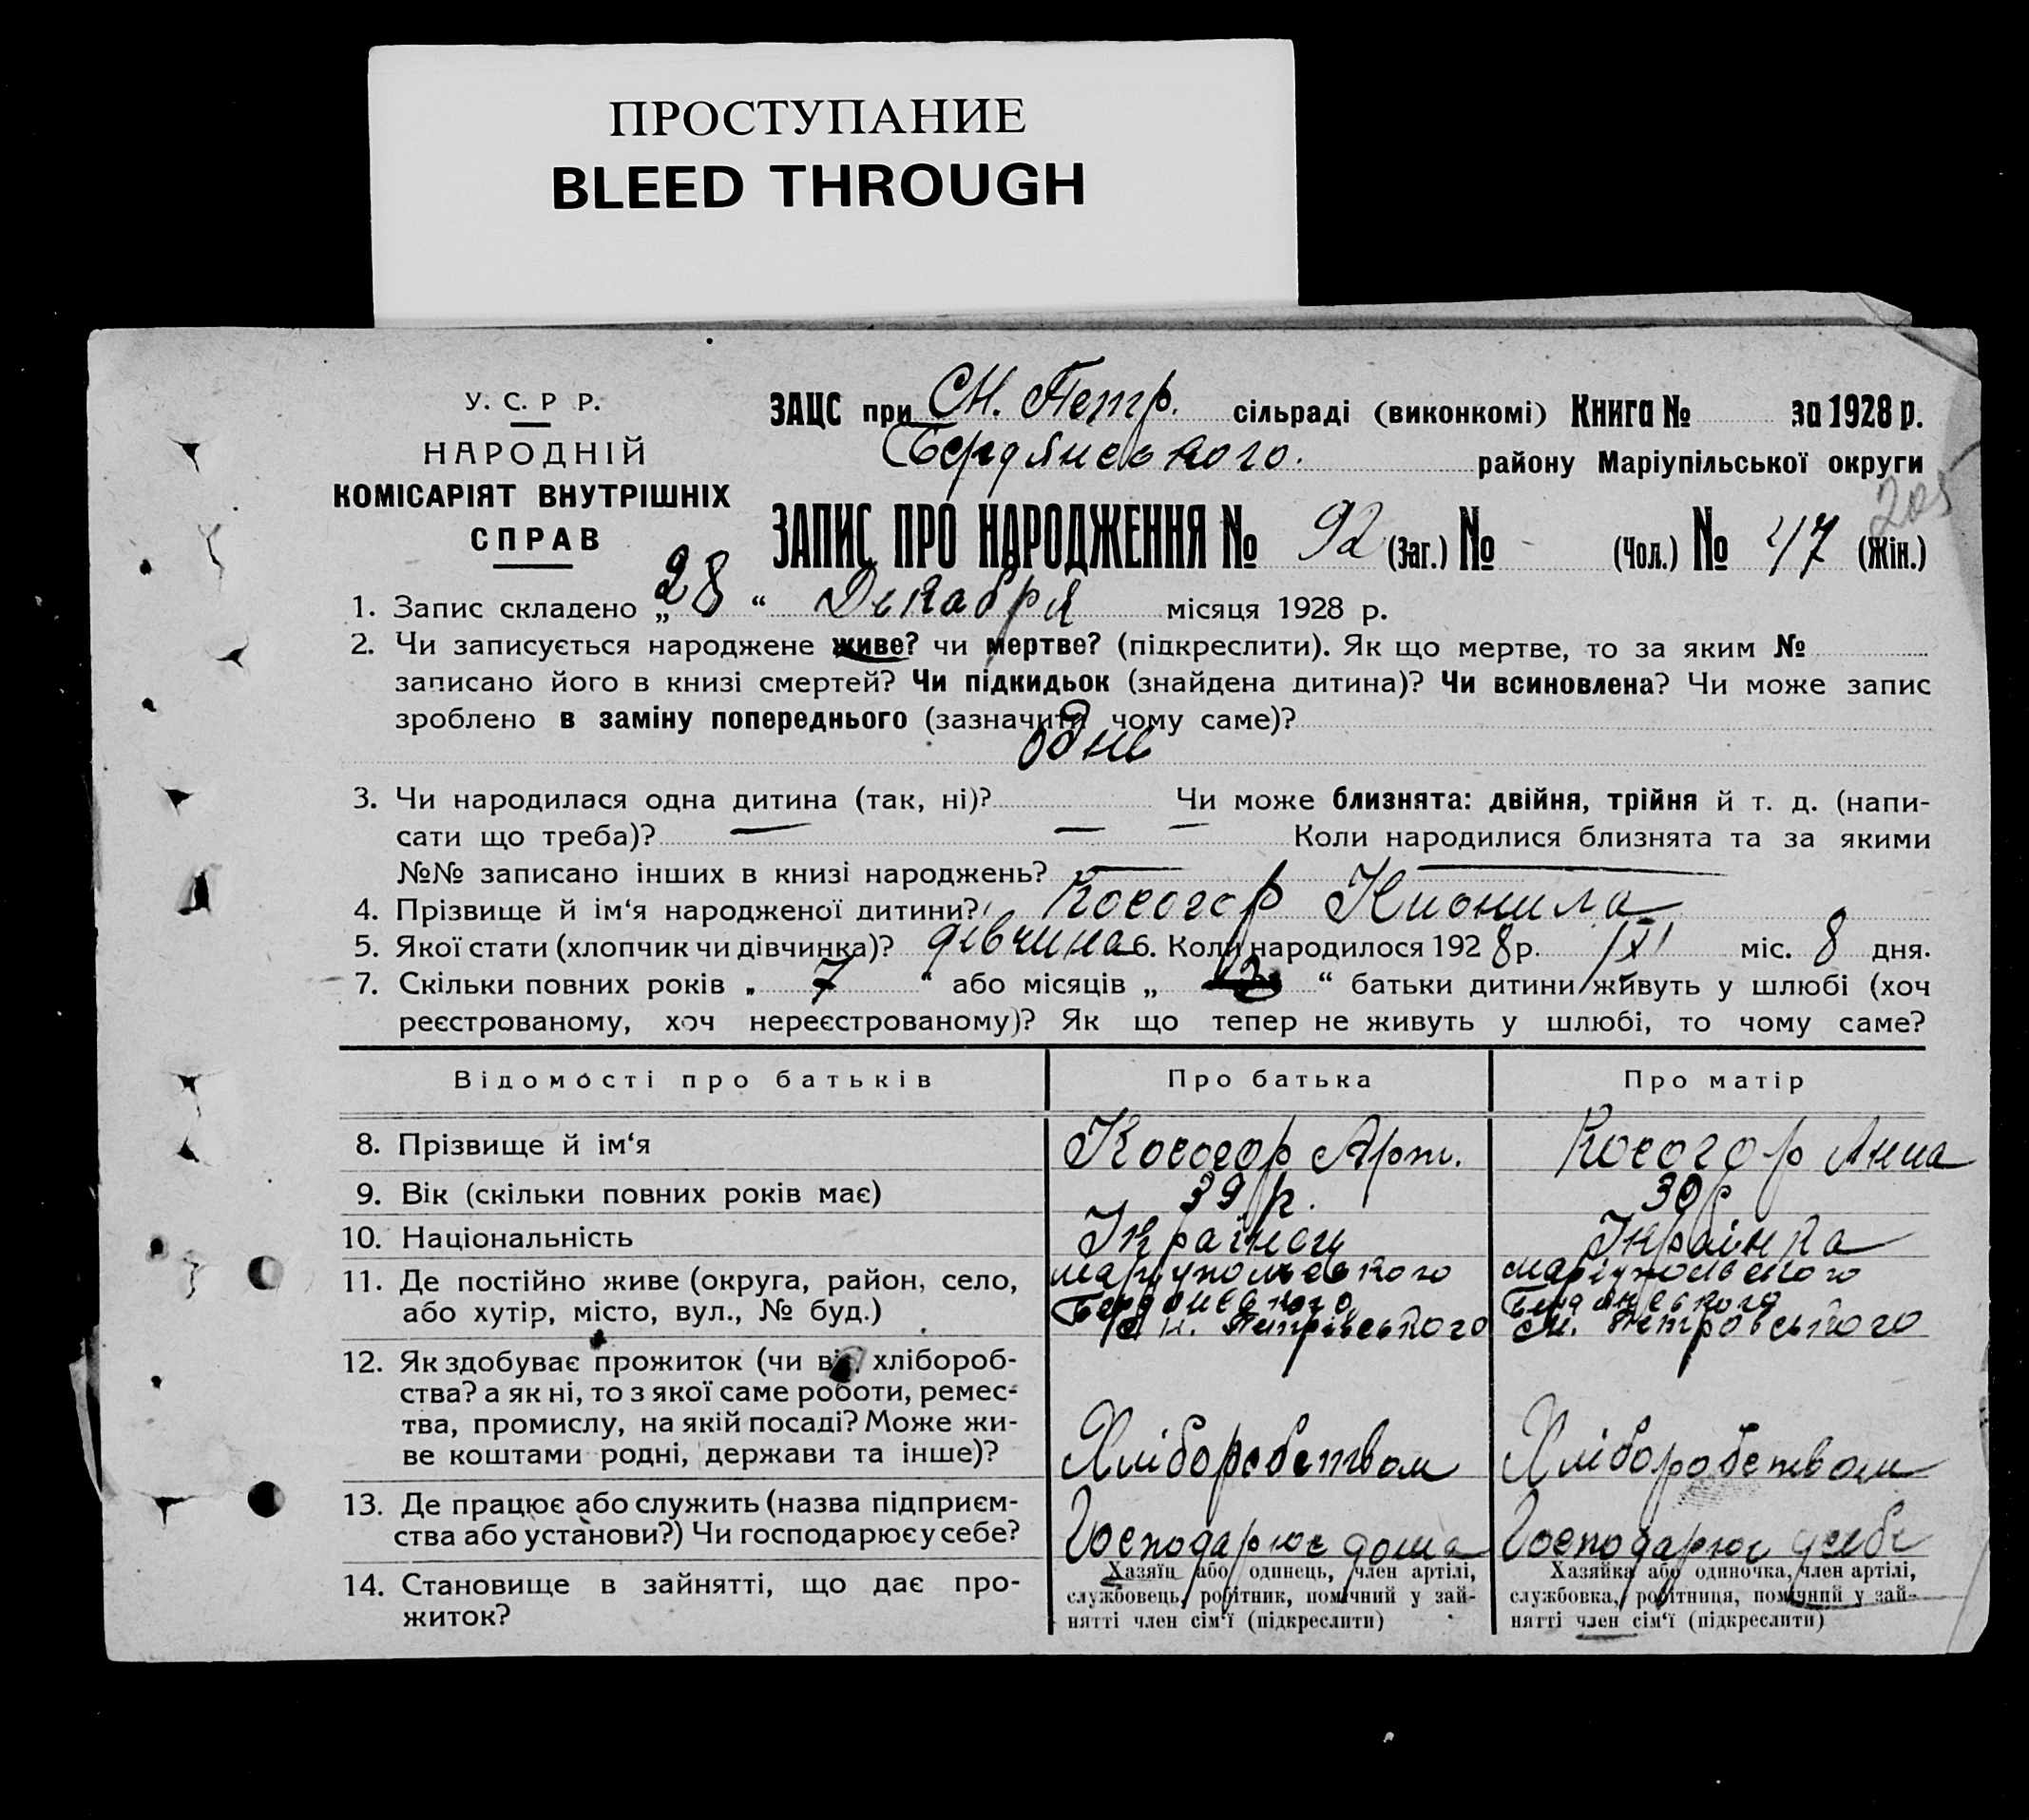 ПРОСТУПАНИЕ
BLEED THROUGH
У. С. Р Р.
НАРОДНІЙ
КОМІСАРІЯТ ВНУТРІШНІХ
СПРАВ
ЗАЦС при СН. Петр. сільраді (виконкомі) Книга № за 1928 р.
Бердянського. району Маріупільської округи
205
ЗАПИС ПРО НАРОДЖЕННЯ № 92 (Заг.) № - (Чол.) № 47 (Жін.)
1. Запис складено „28“ Декабря місяця 1928 р.
2. Чи записується народжене живе? чи мертве? (підкреслити). Як що мертве, то за яким №
записано його в книзі смертей? Чи підкидьок (знайдена дитина)? Чи всиновлена? Чи може запис
зроблено в заміну попереднього (зазначити чому саме)?
одне
3. Чи народилася одна дитина (так, ні)? Чи може близнята: двійня, трійня й т. д. (напи-
сати що треба)? — — — Коли народилися близнята та за якими
№№ записано інших в книзі народжень? — —
4. Прізвище й ім‘я народженої дитини? Косогор Нионила
5. Якої стати (хлопчик чи дівчинка)? дівчина 6. Коли народилося 1928 р. XI міс. 8 дня.
7. Скільки повних років „ 7 “ або місяців „ “ батьки дитини живуть у шлюбі (хоч
реєстрованому, хоч нереєстрованому)? Як що тепер не живуть у шлюбі, то чому саме?
Відомості про батьків Про батька Про матір
8. Прізвище й ім‘я Косогор Арт. Косогор Анна
9. Вік (скільки повних років має) 39 р. 30 р
10. Національність Українец Українка
11. Де постійно живе (округа, район, село, Маріупольського Маріупольського
або хутір, місто, вул., № буд.) Бердянського Бердянського
Сн. Петрівського Сн. Петровського
12. Як здобуває прожиток (чи від хлібороб-
ства? а як ні, то з якої саме роботи, ремес-
тва, промислу, на якій посаді? Може жи-
ве коштами родні, держави та інше)? Хліборобством Хліборобством
13. Де працює або служить (назва підприєм-
ства або установи?) Чи господарює у себе? Господарює дома Господарює у себе
14. Становище в зайнятті, що дає про-
житок?
Хазяїн або одинець, член артілі,
службовець, робітник, помічний у зай-
нятті член сім‘ї (підкреслити)
Хазяйка або одиночка, член артілі,
службовка, робітниця, помічний у зай-
нятті член сім‘ї (підкреслити)